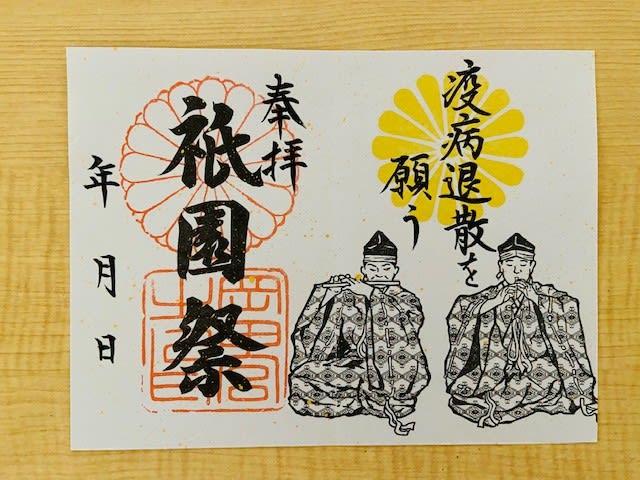 疫病退散を
願う
奉拝
祇園祭
年 月 日